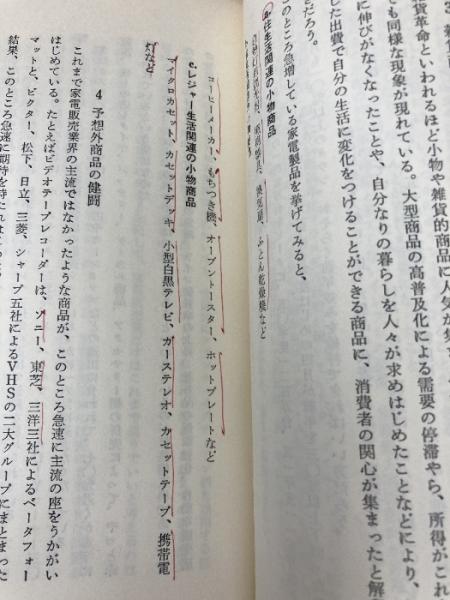 貨革命といわれるほど小物や雑貨的商品に人気が集
でも同様な現象が現れている。大型商品の高普及化による需要の停滞やら、所得がこれ
に伸びがなくなったことや、自分なりの暮らしを人々が求めはじめたことなどにより、
した出費で自分の生活に変化をつけることができる商品に、消費者の関心が集まったと解
だろう。
のところ急増している家電製品を挙げてみると、
a.住生活関連の小物商品
換気扇、ふとん乾燥機など
コーヒーメーカー、もちつき機、オーブントースター、ホットプレートなど
c.レジャー生活関連の小物商品
マイクロカセット、カセットデッキ、小型白黒テレビ、カーステレオ、カセットテープ、携帯電
灯など
4 予想外商品の健闘
これまで家電販売業界の主流ではなかったような商品が、このところ急速に主流の座をうかがい
はじめている。たとえばビデオテープレコーダーは、ソニー、東芝、三洋三社によるベータフォー
マットと、ビクター、松下、日立、三菱、シャープ五社によるVHSの二大グループにまとまった
結果、このところ急速に期待を持たれ